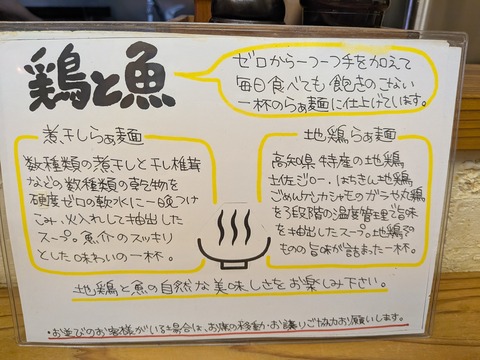 鶏と魚
ゼロから一つ一つ手を加えて
毎日食べても飽きのこない
一杯のらぁ麺に仕上げています。
煮干しらぁ麺
数種類の煮干しと干し椎茸
などの数種類の乾物を
硬度ゼロの軟水に一晩つけ
こみ、火入れして抽出した
スープ。魚介のスッキリ
とした味わいの一杯。
地鶏らぁ麺
高知県特産の地鶏
土佐ジロー、はちきん地鶏
ごめんケンカシャモのガラや丸鶏
を3段階の温度管理で旨味
を抽出したスープ。地鶏
ものの旨味が詰まった一杯。
地鶏と魚の自然な美味しさをお楽しみ下さい。
・お並びのお客様がいる場合は、お席の移動・お譲りご協力お願いします。